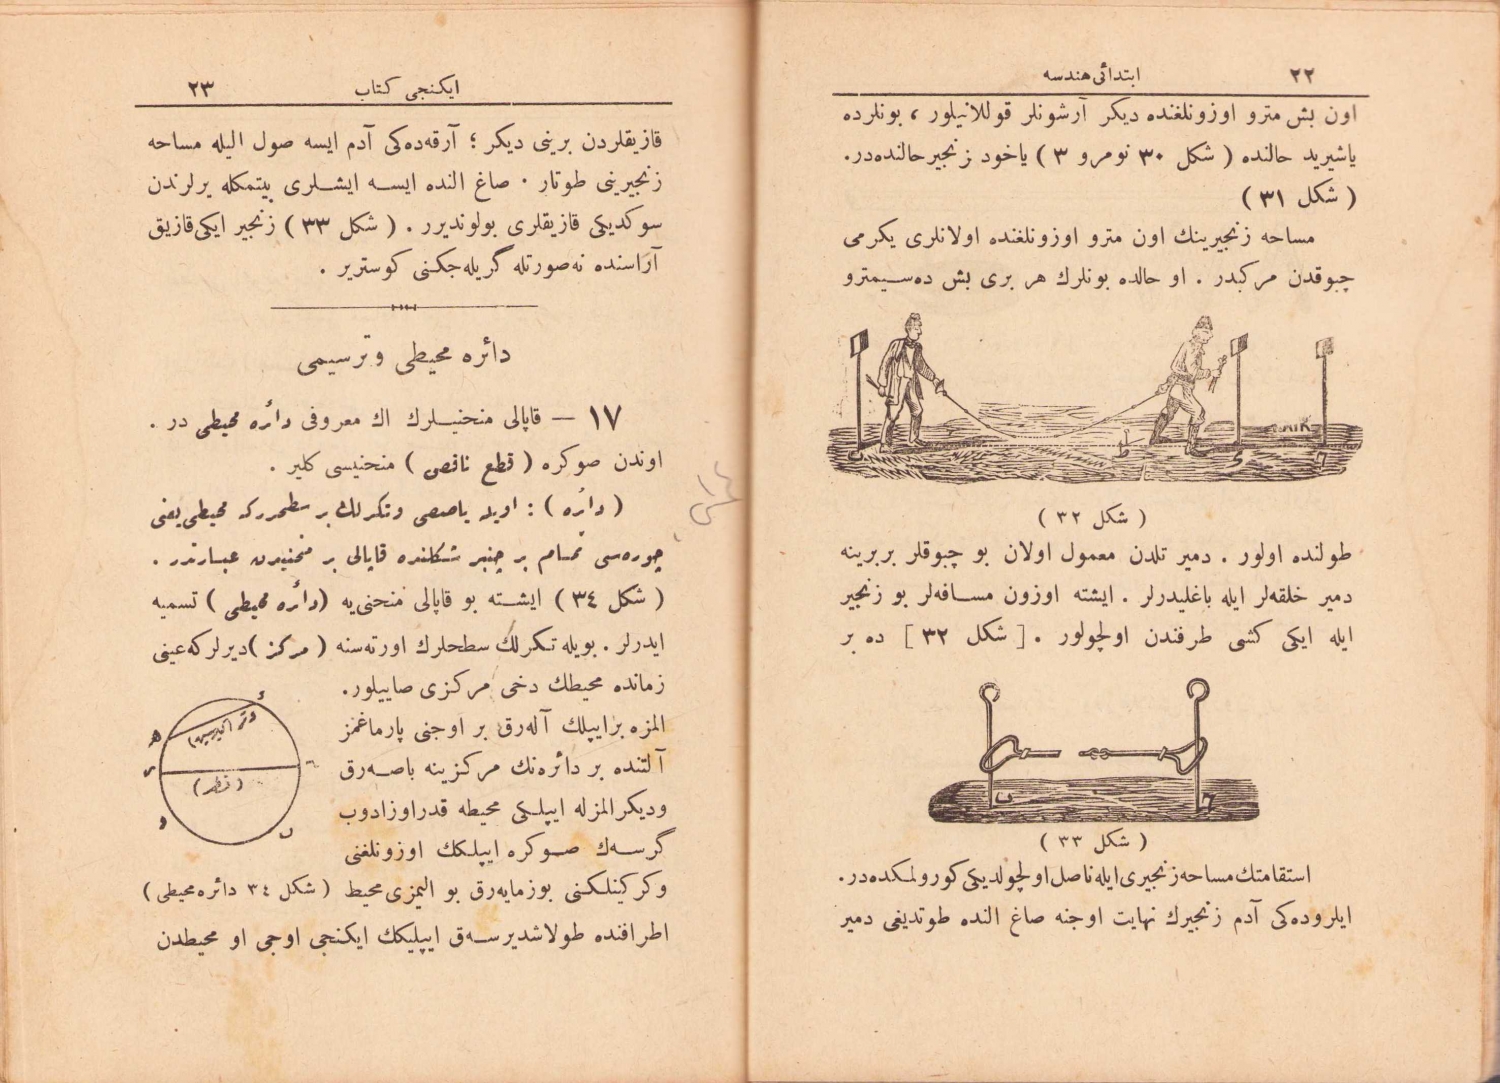 ٢٢
ابتدائی هندسه
اون بش مترو اوزونلغنده دیكر آرشونلر قوللانیلور ، بونلرده
یا شیرید حالنده ( شكل ٣٠ نومرو ٣ ) یاخود زنجیر حالنده در.
( شكل ٣١ )
مساحه زنجیرینك اون مترو اوزونلغنده اولانلری یكرمی
چبوقدن مركبدر . او حالده بونلرك هر بری بش ده سیمترو
( شكل ٣٢ )
طولنده اولور . دمیر تلدن معمول اولان بو چبوقلر بربرینه
دمیر خلقه لر ایله باغلیدرلر . ایشته اوزون مسافه لر بو زنجیر
ایله ایكی كشی طرفندن اولچولور . [ شكل ٣٢ ] ده بر
( شكل ٣٣ )
استقامتك مساحه زنجیری ایله ناصل اولچولدیكی كورولمكده در.
ایلروده كی آدم زنجیرك نهایت اوجنه صاغ النده طوتدیغی دمیر
٢٣
ایكنجی كتاب
قازیقلردن برینی دیكر ؛ آرقه ده كی آدم ایسه صول الیله مساحه
زنجیرینی طوتار . صاغ النده ایسه ایشلری بیتمكله یرلرندن
سوكدیكی قازیقلری بولوندیرر . ( شكل ٣٣ ) زنجیر ایكی قازیق
آراسنده نه صورتله گریله جكنی كوستریر .
دائره محیطی و ترسیمی
١٧ — قاپالی منحنیلرك اك معروفی دائره محیطی در .
اوندن صوكره ( قطع ناقص ) منحنیسی كلیر .
( دائره ) : اویله یاصصی و تكرلك بر سطحدركه محیطی یعنی
چوره سی تمام بر چنبر شكلنده قاپالی بر منحنیدن عبارتدر .
( شكل ٣٤ ) ایشته بو قاپالی منحنی یه ( دائره محیطی ) تسمیه
ایدرلر . بویله تكرلك سطحلرك اورته سنه ( مركز ) دیرلر كه عینی
زمانده محیطك دخی مركزی صاییلور.
المزه بر ایپلك آله رق بر اوجنی پارماغمز
آلتنده بر دائره نك مركزینه باصه رق
و دیكر المزله ایپلكی محیطه قدر اوزادوب
گرسه ك صوكره ایپلكك اوزونلغنی
و كركینلكنی بوزمایه رق بو المزی محیط
( شكل ٣٤ دائره محیطی )
اطرافنده طولاشدیرسه ق ایپلیكك ایكنجی اوجی او محیطدن
وتر
( قطر )